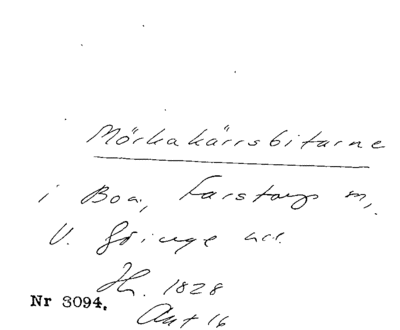 Mörkakärrsbitarne
i Boa, Farstorps sn,
V. Göinge hd.
Hs. 1828
Nr 3094.
Akt 16